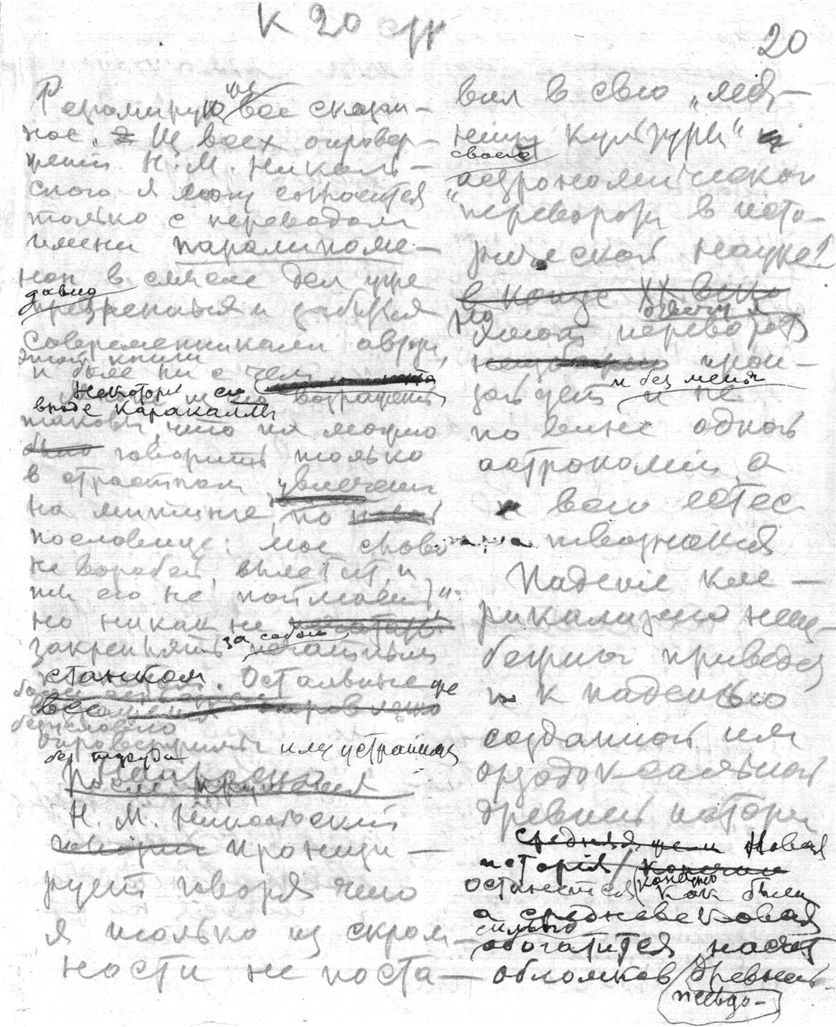 К 20 стр
20
Резюмирую же все сказан-
ное. Из всех опровер-
жений Н. М. Николь-
ского я могу согласиться
только с переводом
имени паралипоме-
нон в смысле дел уже
давно
презренных и забытых
современниками автора
этой книги
и более ни с чем
Некоторые его возражения
вроде Каракаллы
таковы, что их можно
было говорить только
в страстном увлечении
на митинге, по
пословице: мое слово
не воробей, вылетит, и
ты его не поймаешь,
но никак не
закреплять за собою печатным
станком. Остальные же
все
безусловно
без труда или устранимы
После
Н. М. Никольский
который иронизи-
рует говоря что
я только из скром-
ности не поста-
вил в свою „лед-
ницу культуры“
своего
астрономического
„переворота в исто-
рической науке“
в конце XX века
Но этот переворот
прои-
зойдет и без меня и не
по вине одной
астрономии, а
всего естес
твознания
Падение кле-
рикализма неиз-
бежно приведет
и к падению
созданной им
ортодоксальной
древней истории
средняя Новая
история
останется конечно как была
а средневековая
сильно
обогатится насчет
обломков древней
псевдо-